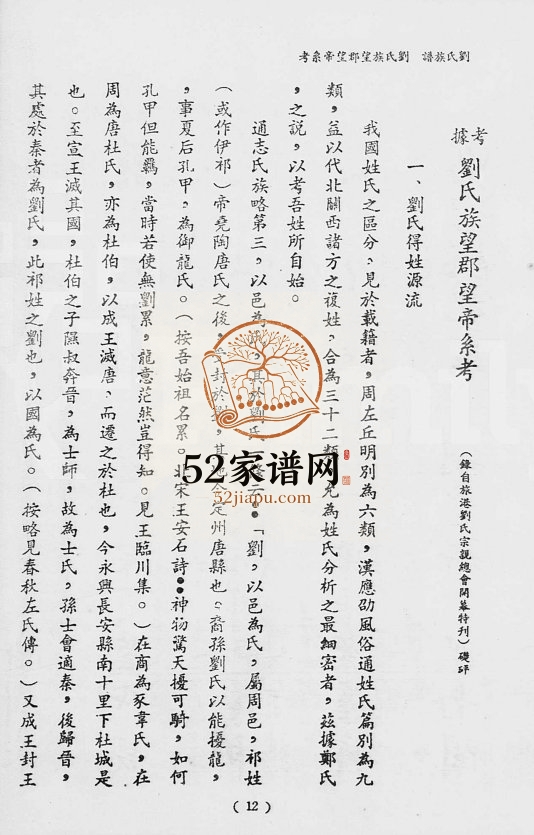 劉氏族譜　劉氏族望郡望帝系考
考據　劉氏族望郡望帝系考
（錄自旅港劉氏宗親總會開幕特刊）礎砰
一、劉氏得姓源流
我國姓氏之區分、見於載籍者，周左丘明別為六類，漢應劭風俗通姓氏篇別為九
類，益以代北關西諸方之復姓、合為三十二類，允為姓氏分析之最細密者，茲據鄭氏
，之說，以考吾姓所自始。
通志氏族略第三，以邑為氏，其於劉氏
「劉，以邑為氏，屬周邑，祁姓
（或作伊祁）帝堯陶唐氏之後，封於劉，其地今定州唐縣也。裔孫劉氏以能擾龍，
，事夏后孔甲，為御龍氏。（按吾始祖名累。北宋王安石詩：神物驚天擾可騎，如何
孔甲但能羈，當時若使無劉累，龍意茫然豈得知。見王臨川集。）在商為豕韋氏，在
周為唐杜氏，亦為杜伯，以成王滅唐、而遷之於杜也，今永興長安縣南十里下杜城是
也。至宣王滅其國，杜伯之子隰叔奔晉，為士師，故為士氏，孫士會適秦，後歸晉，
其處於秦者為劉氏，此祁姓之劉也，以國為氏。（按略見春秋左氏傳。）又成王封王
（12）
52家谱网
52jiapu.com